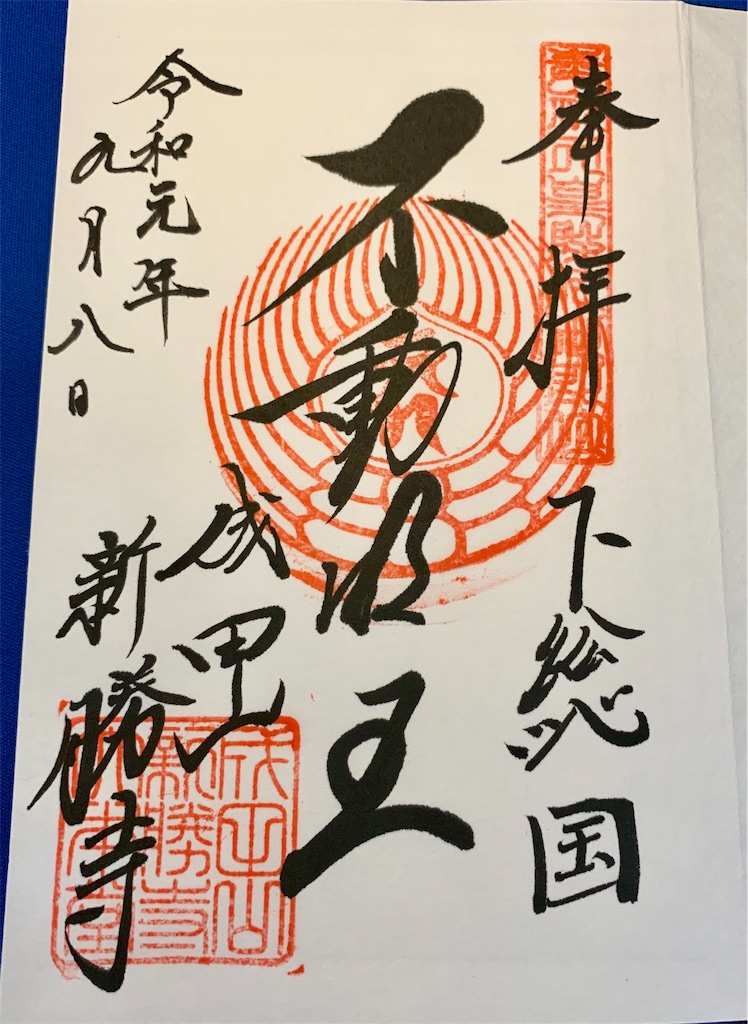 奉拝
下総国
不動明王
令和元年
九月八日
成田山
新勝寺
成田山
新勝寺